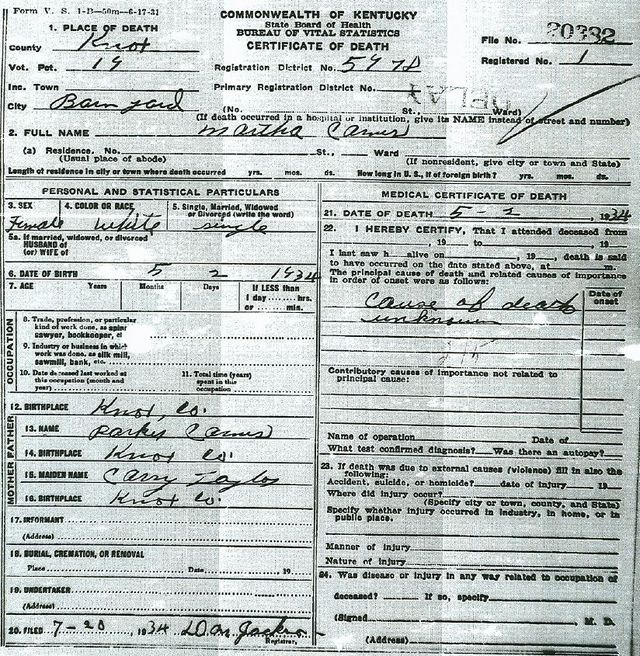 Form V. S. 1-B—50m—6-17-31
COMMONWEALTH OF KENTUCKY
State Board of Health
BUREAU OF VITAL STATISTICS
CERTIFICATE OF DEATH
1. PLACE OF DEATH
County Knox
Vot. Pct. 19
Inc. Town
City
File No. 20382
Registered No. 1
Registration District No. 5978
Primary Registration District No.
(No. St., Ward)
(If death occurred in a hospital or institution, give its NAME instead of street and number)
2. FULL NAME Martha
(a) Residence. No. St., Ward
(Usual place of abode) (If nonresident, give city or town and State)
Length of residence in city or town where death occurred yrs. mos. ds. How long in U. S., if of foreign birth? yrs. mos. ds.
PERSONAL AND STATISTICAL PARTICULARS
3. SEX 4. COLOR OR RACE 5. Single, Married, Widowed
or Divorced (write the word)
Female White Single
5a. If married, widowed, or divorced
HUSBAND of
(or) WIFE of
6. DATE OF BIRTH 5 2 1934
7. AGE Years Months Days If LESS than
1 day hrs.
or min.
OCCUPATION
8. Trade, profession, or particular
kind of work done, as spinner
sawyer, bookkeeper, etc
9. Industry or business in which
work was done, as silk mill,
sawmill, bank, etc.
10. Date deceased last worked at
this occupation (month and
year)
11. Total time (years)
spent in this
occupation
12. BIRTHPLACE Knox, Co.
FATHER
13. NAME
14. BIRTHPLACE Knox Co
MOTHER
15. MAIDEN NAME Carry Taylor
16. BIRTHPLACE Knox Co.
17. INFORMANT
(Address)
18. BURIAL, CREMATION, OR REMOVAL
Place Date 19
19. UNDERTAKER
(Address)
20. FILED 7-20 1934
Registrar.
MEDICAL CERTIFICATE OF DEATH
21. DATE OF DEATH 5-2 1934
22. I HEREBY CERTIFY, That I attended deceased from
19 to 19
I last saw h alive on 19 , death is said
to have occurred on the date stated above, at m.
The principal cause of death and related causes of importance
in order of onset were as follows:
Date of
onset
Cause of death
unknown
Contributory causes of importance not related to
principal cause:
Name of operation Date of
What test confirmed diagnosis? Was there an autopsy?
23. If death was due to external causes (violence) fill in also the
following:
Accident, suicide, or homicide? date of injury 19
Where did injury occur?
(Specify city or town, county, and State)
Specify whether injury occurred in industry, in home, or in
public place.
Manner of injury
Nature of injury
24. Was disease or injury in any way related to occupation of
deceased? If so, specify
(Signed M. D.
(Address)